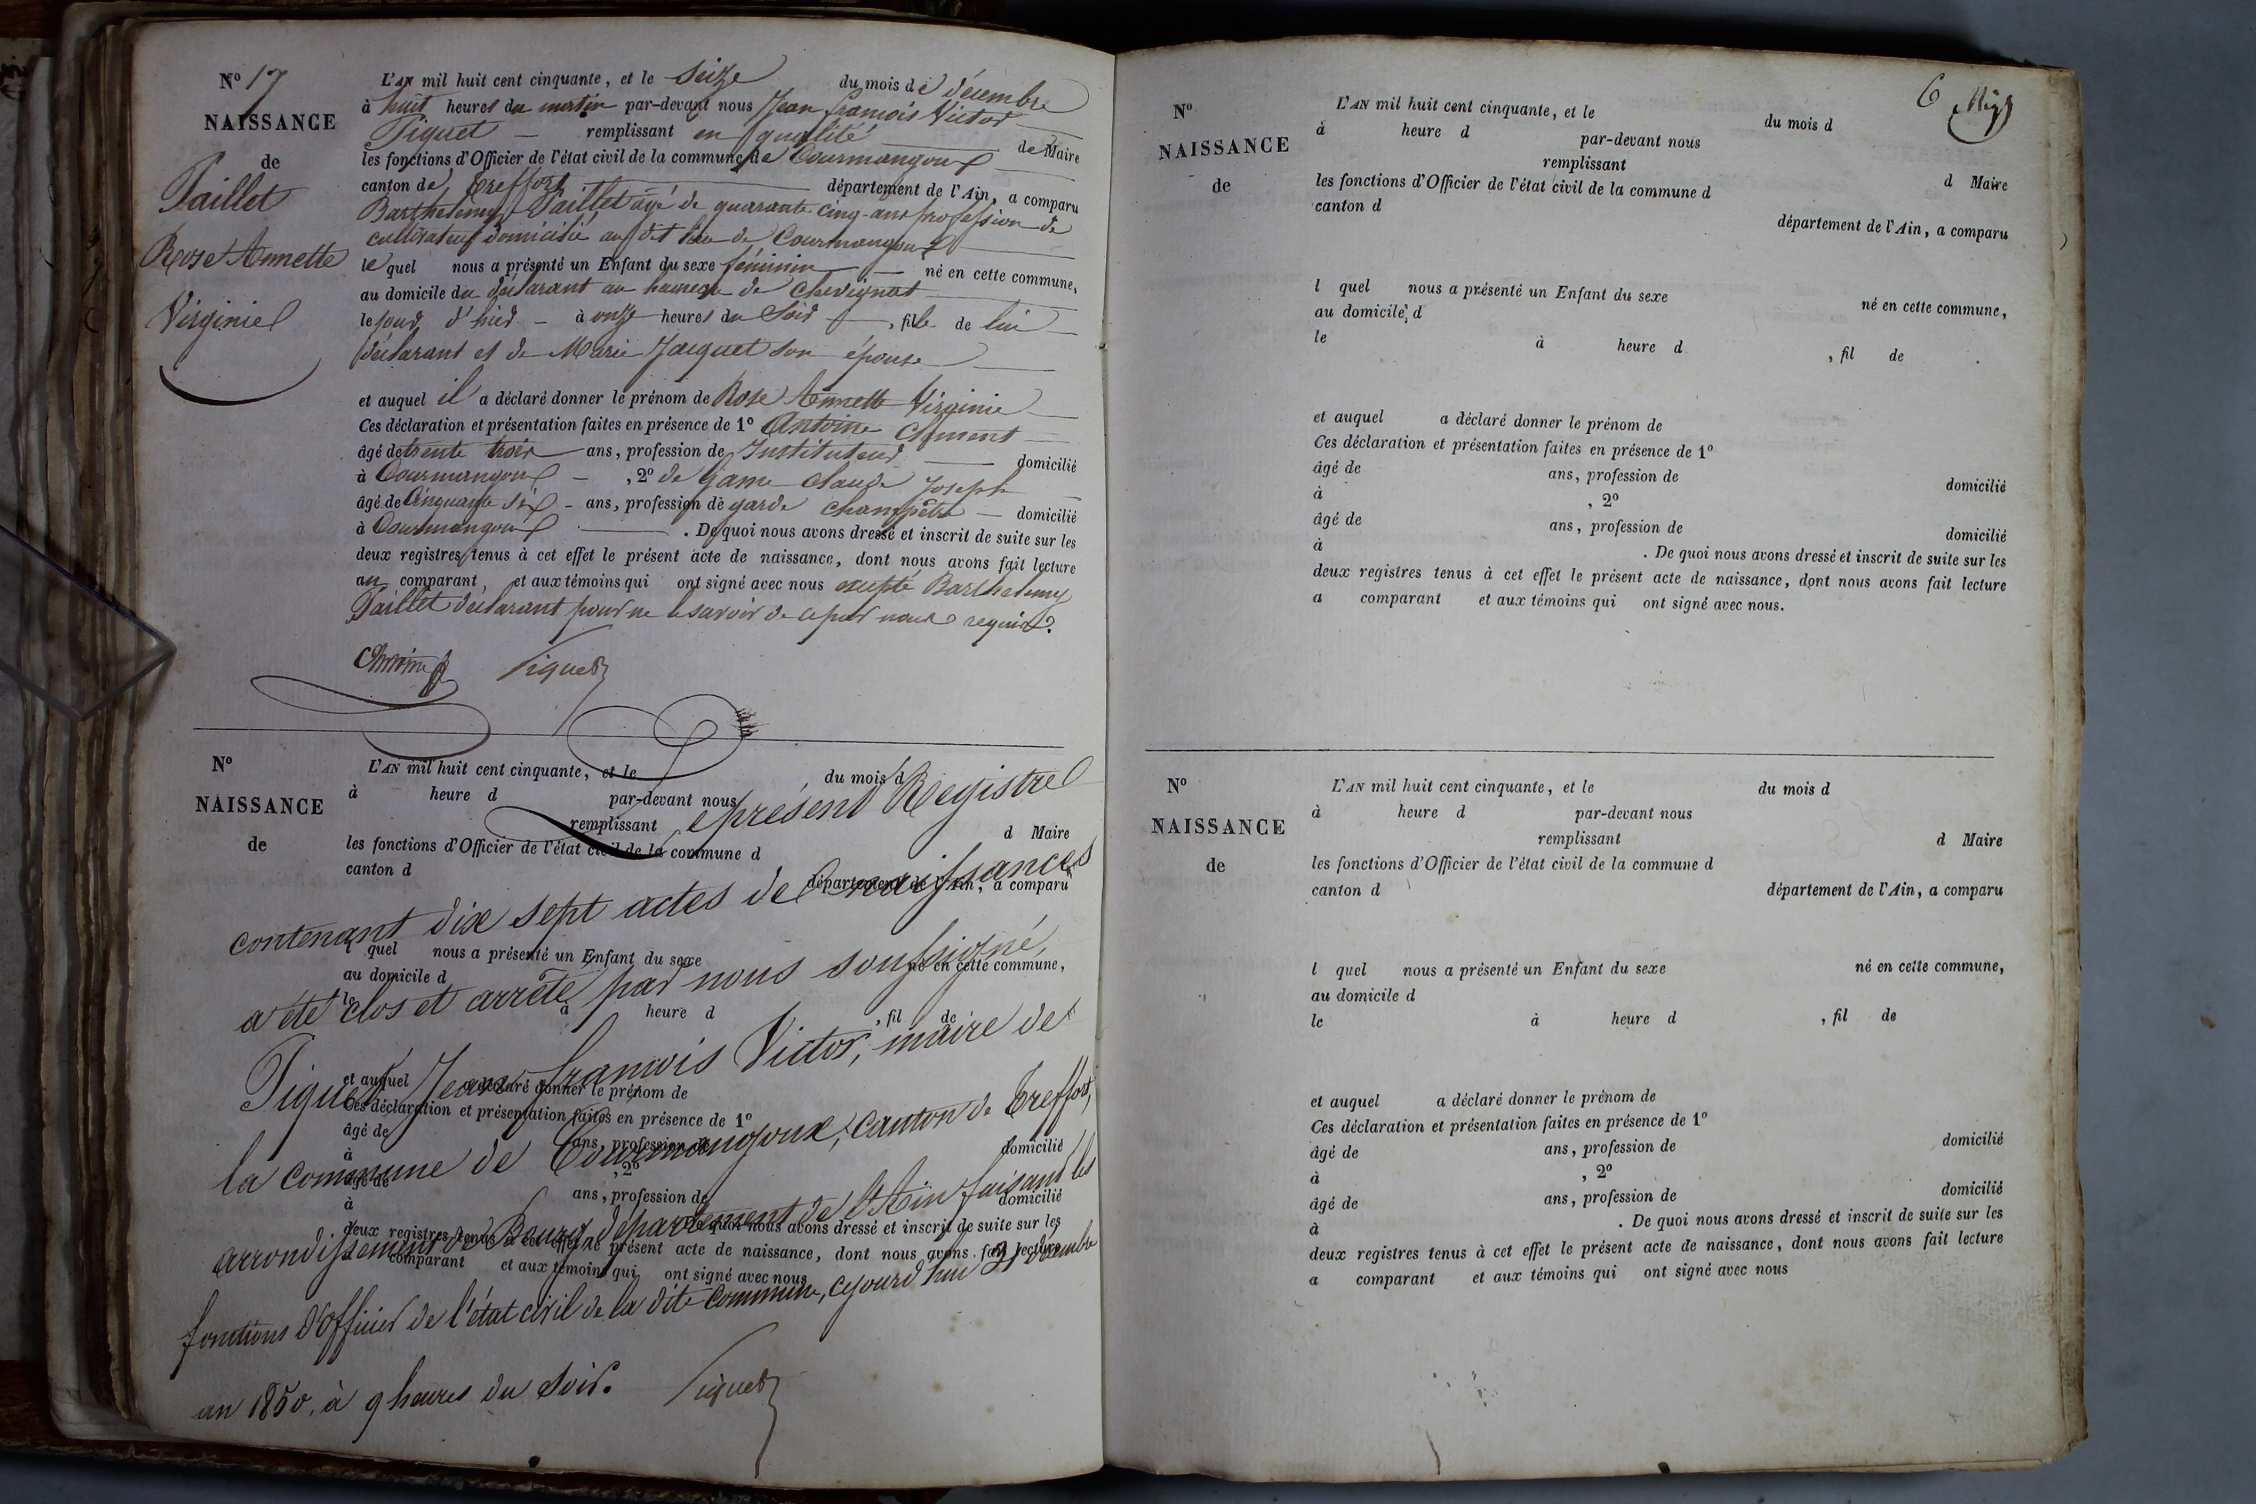 N° 17
NAISSANCE
de
Paillet
Rose Annette
Virginie
L'AN mil huit cent cinquante, et le seize du mois de décembre
à huit heures du matin par-devant nous Jean françois Victor
Piquet remplissant en qualité de Maire
les fonctions d'Officier de l'état civil de la commune de Courmangoux
canton de Treffort département de l'Ain, a comparu
Barthelemy Paillet âgé de quarante cinq ans profession de
cultivateur domicilié au dit lieu de Courmangoux
le quel nous a présenté un Enfant du sexe féminin né en cette commune,
au domicile du déclarant au hameau de Chevignat
le jour d'hier à onze heures du soir, fille de lui
déclarant et de Marie Jacquet son épouse
et auquel il a déclaré donner le prénom de Rose Annette Virginie
Ces déclaration et présentation faites en présence de 1° Antoine Clément
âgé de trente trois ans, profession de Instituteur domicilié
à Courmangoux, 2° de Game claude Joseph
âgé de Cinquante six ans, profession de garde champêtre domicilié
à Courmangoux. De quoi nous avons dressé et inscrit de suite sur les
deux registres tenus à cet effet le présent acte de naissance, dont nous avons fait lecture
au comparant, et aux témoins qui ont signé avec nous excepté Barthelemy
Paillet déclarant pour ne le savoir de ce par nous requis.
Piquet
N°
NAISSANCE
de
L'AN mil huit cent cinquante, et le du mois d
à heure d par-devant nous
remplissant d Maire
les fonctions d'Officier de l'état civil de la commune d
canton d département de l'Ain, a comparu
l quel nous a présenté un Enfant du sexe né en cette commune,
au domicile d
le à heure d, fil de
et auquel a déclaré donner le prénom de
Ces déclaration et présentation faites en présence de 1°
âgé de ans, profession de domicilié
à, 2°
âgé de ans, profession de domicilié
à. De quoi nous avons dressé et inscrit de suite sur les
deux registres tenus à cet effet le présent acte de naissance, dont nous avons fait lecture
comparant et aux témoins qui ont signé avec nous
Le présent Registre
contenant dix sept actes de naissances
a été clos et arrêté par nous soussigné,
Piquet Jean francois Victor, maire de
la commune de Courmangoux, canton de Treffort,
arrondissement de Bourg, département de l'Ain faisant les
fonctions d'officier de l'état civil de la dite commune, cejourd'hui 31 décembre
an 1850, à 9 heures du soir.
Piquet
6
N°
NAISSANCE
de
L'AN mil huit cent cinquante, et le du mois d
à heure d par-devant nous
remplissant d Maire
les fonctions d'Officier de l'état civil de la commune d
canton d département de l'Ain, a comparu
l quel nous a présenté un Enfant du sexe né en cette commune,
au domicile d
le à heure d, fil de
et auquel a déclaré donner le prénom de
Ces déclaration et présentation faites en présence de 1°
âgé de ans, profession de domicilié
à, 2°
âgé de ans, profession de domicilié
à. De quoi nous avons dressé et inscrit de suite sur les
deux registres tenus à cet effet le présent acte de naissance, dont nous avons fait lecture
a comparant et aux témoins qui ont signé avec nous.
N°
NAISSANCE
de
L'AN mil huit cent cinquante, et le du mois d
à heure d par-devant nous
remplissant d Maire
les fonctions d'Officier de l'état civil de la commune d
canton d département de l'Ain, a comparu
l quel nous a présenté un Enfant du sexe né en cette commune,
au domicile d
le à heure d, fil de
et auquel a déclaré donner le prénom de
Ces déclaration et présentation faites en présence de 1°
âgé de ans, profession de domicilié
à, 2°
âgé de ans, profession de domicilié
à. De quoi nous avons dressé et inscrit de suite sur les
deux registres tenus à cet effet le présent acte de naissance, dont nous avons fait lecture
a comparant et aux témoins qui ont signé avec nous